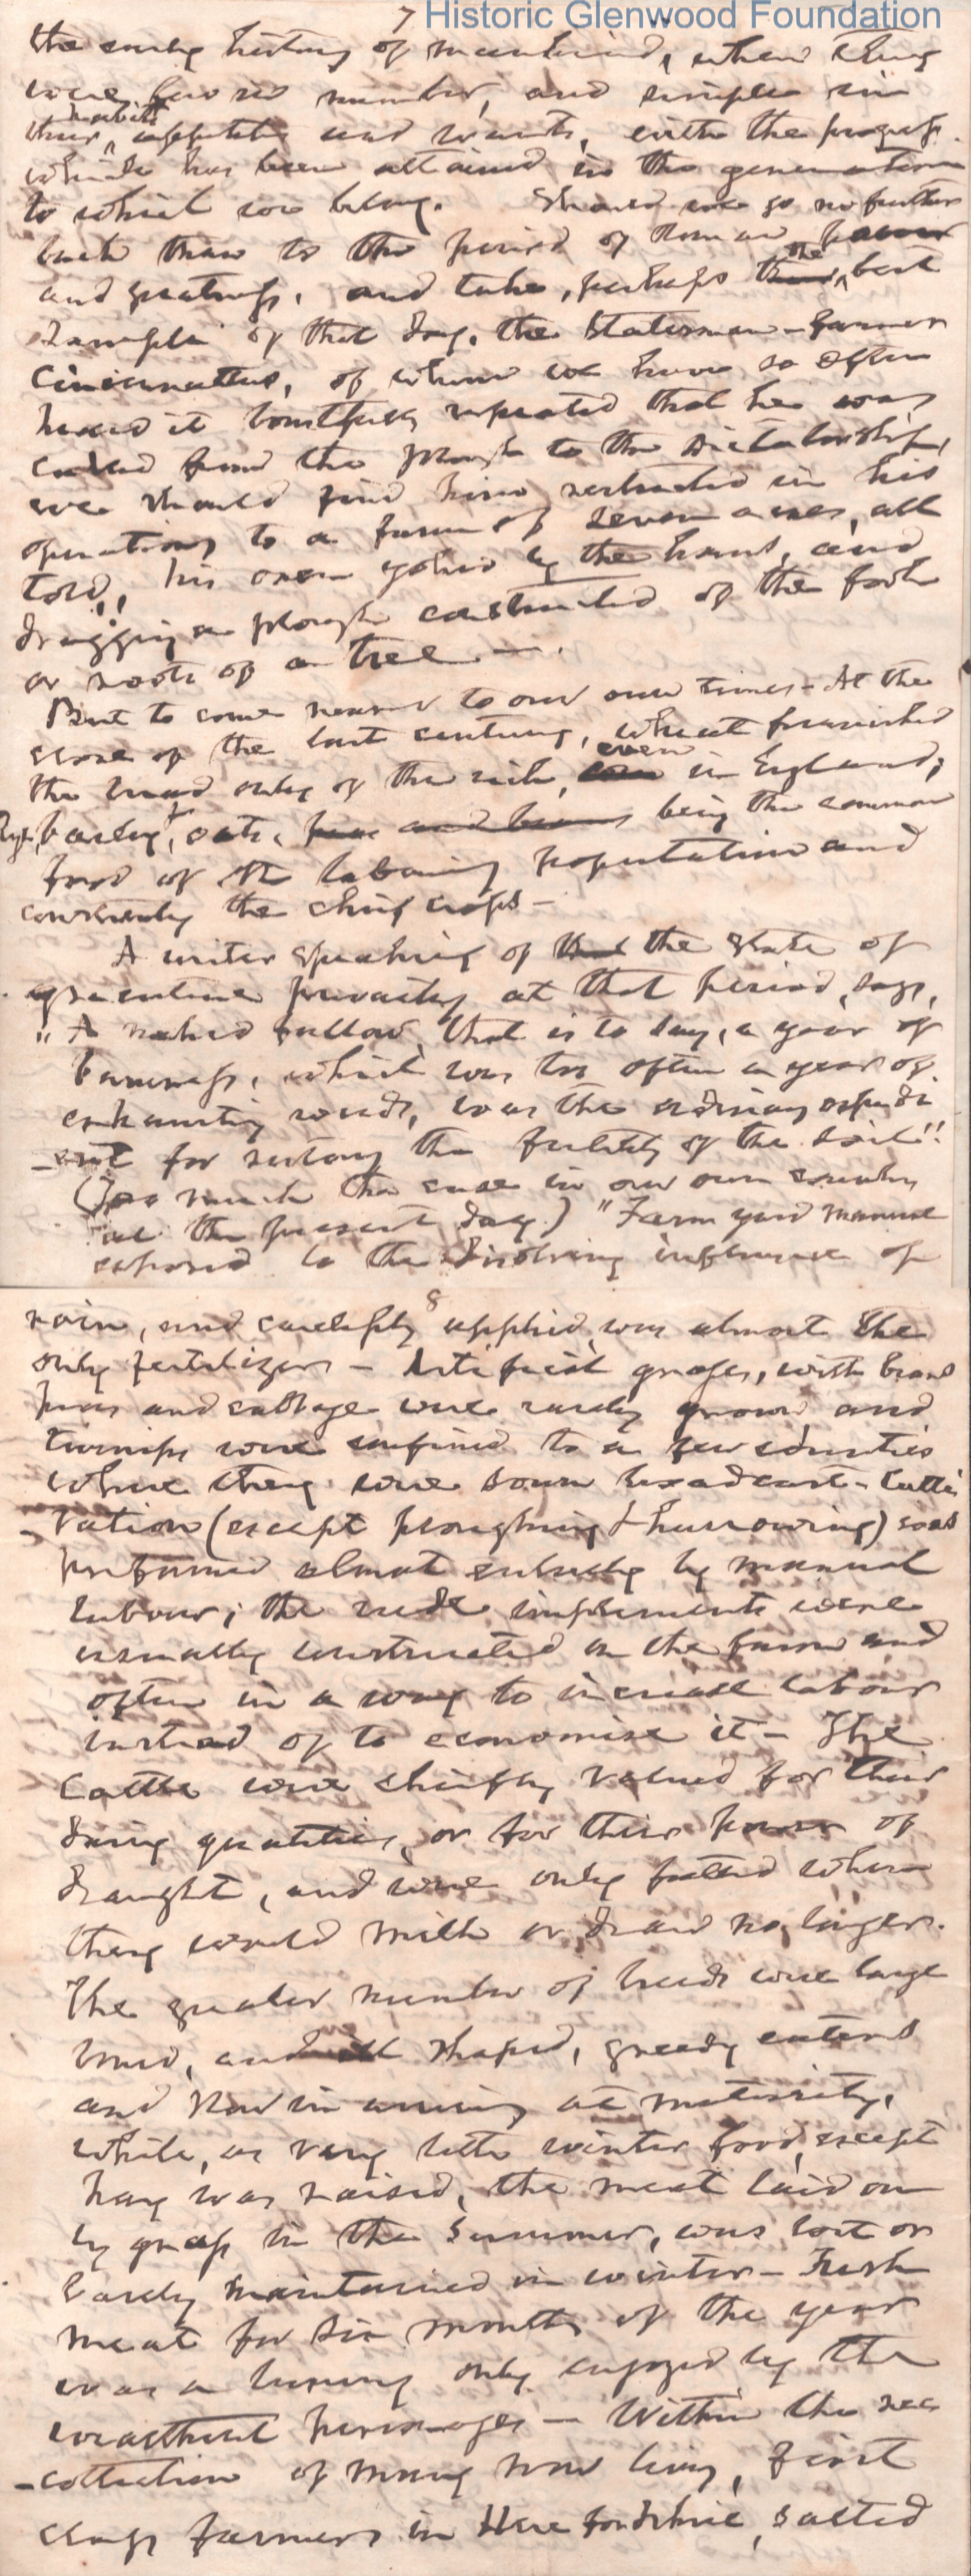 7 Historic Glenwood Foundation
the early history of mankind, when they
were few in number, and simple in
habits
their appetites and wants, with the progress
which has been attained in the generation
to which we belong. Should we go no further
back than to the period of Roman power
and greatness, and take, perhaps the best
example of that day, the Statesman-farmer
Cincinnattus, of whom we have so often
heard it boastfully repeated that he was
called from the plough to the Dictatorship,
we should find him restricted in his
operations to a farm of seven acres, all
told!, his oxen yoked by the horns, and
dragging a plough constructed of the fork
or roots of a tree —.
But to come nearer to our own times - At the
close of the last century, wheat furnished
the bread only of the rich, even in England;
Rye, barley, & oats, peas and beans being the common
food of the laboring population and
constantly the chief crops —
A writer speaking of the state of
agriculture prevailing at that period, says,
"A naked fallow, that is to say, a year of
barrenness, which was too often a year of
exhausting weeds, was the ordinary expedi
-ent for restoring the fertility of the soil"!
(Too much the case in our own country
at the present day.) "Farm yard manure
exposed to the dissolving influence of
8
rain, and carelessly applied, was almost the
only fertilizer — Artificial grasses, with beans
peas and cabbage were rarely grown, and
turnips were confined to a few counties
where they were sown broadcast - Culti
-vation (except ploughing & harrowing) was
performed almost entirely by manual
labour; the rude implements were
usually constructed on the farm and
often in a way to increase labour
instead of to economise it — The
Cattle were chiefly valued for their
dairy qualities, or for their power of
draught, and were only fatted when
they would milk or draw no longer.
The greater number of breeds were large
boned, and ill shaped, greedy eaters
and slow in arriving at maturity,
while, as very little winter food, except
hay was raised, the meat laid on
by grass in the Summer, was lost or
barely maintained in winter — Fresh
meat for six months of the year
was a luxury only enjoyed by the
wealthiest personages — Within the rec
-collection of many now living, first
class farmers in Herefordshire, salted